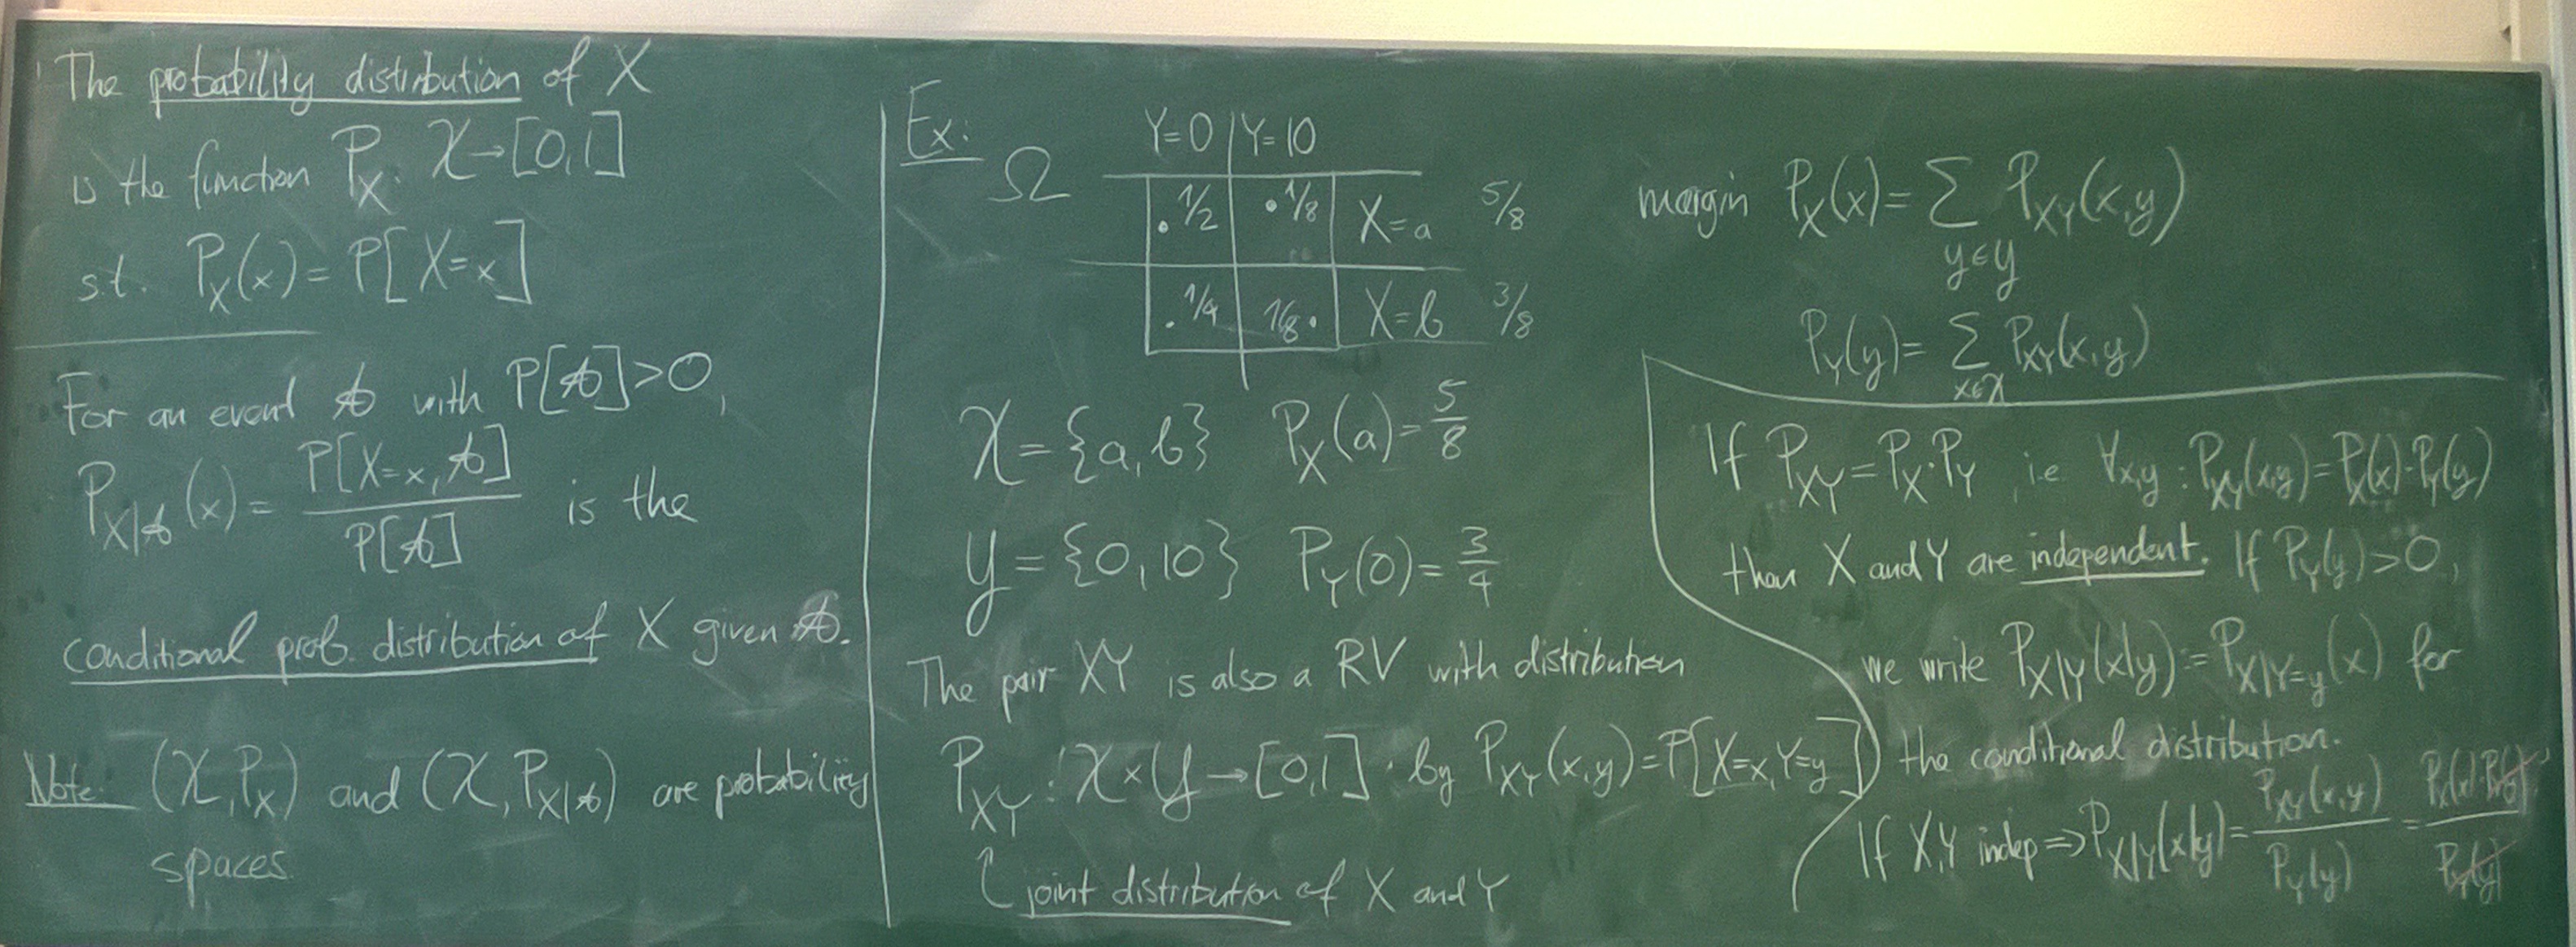 The probability distribution of X
is the function P_X: 𝒳→[0,1]
s.t. P_X(x) = P[X=x]
For an event 𝒜 with P[𝒜]>0,
P_X|𝒜(x) = P[X=x,𝒜] / P[𝒜] is the
conditional prob. distribution of X given 𝒜.
Note: (𝒳,P_X) and (𝒳,P_X|𝒜) are probability
spaces.
Ex:
Y=0 | Y=10
Ω 1/2 1/8 X=a 5/8
1/4 1/8 X=b 3/8
𝒳={a,b} P_X(a)=5/8
𝒴={0,10} P_Y(0)=3/4
The pair XY is also a RV with distribution
P_XY: 𝒳×𝒴→[0,1] by P_XY(x,y)=P[X=x,Y=y]
joint distribution of X and Y
margin P_X(x)=∑_{y∈𝒴} P_XY(x,y)
P_Y(y)=∑_{x∈𝒳} P_XY(x,y)
If P_XY=P_X·P_Y, i.e. ∀x,y: P_XY(x,y)=P_X(x)·P_Y(y)
then X and Y are independent. If P_Y(y)>0,
we write P_X|Y(x|y):=P_X|Y=y(x) for
the conditional distribution.
If X,Y indep ⇒ P_X|Y(x|y)= P_XY(x,y) / P_Y(y) = P_X(x)·P_Y(y) / P_Y(y)